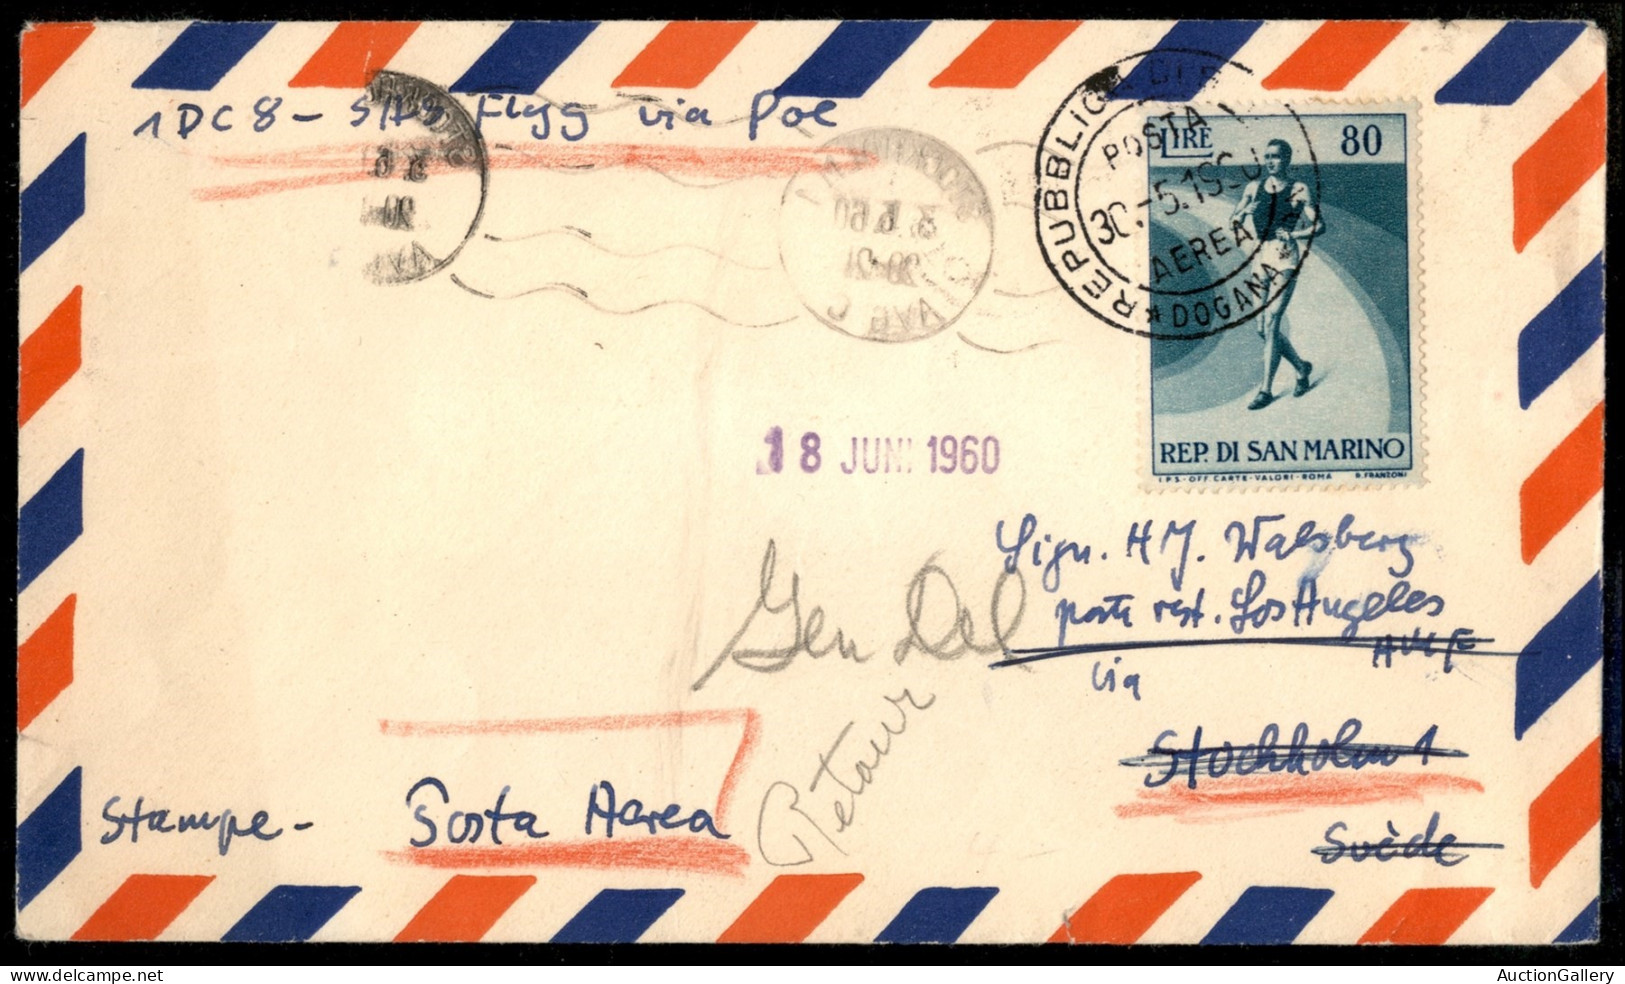 1 DC 8 - SAS Flyg via Pol
REPUBBLICA DI
POSTA
30.-5.19
AEREA
* DOGANA *
LIRE 80
REP. DI SAN MARINO
I.P.S.-OFF. CARTE-VALORI-ROMA R. FRANZONI
18 JUNI 1960
Sign. H J. Walsberg
poste rest. Los Angeles
via
Gen Del
Retour
Stockholm 1
Suède
Stampe - Posta Aerea
AuctionGallery
delcampe.net